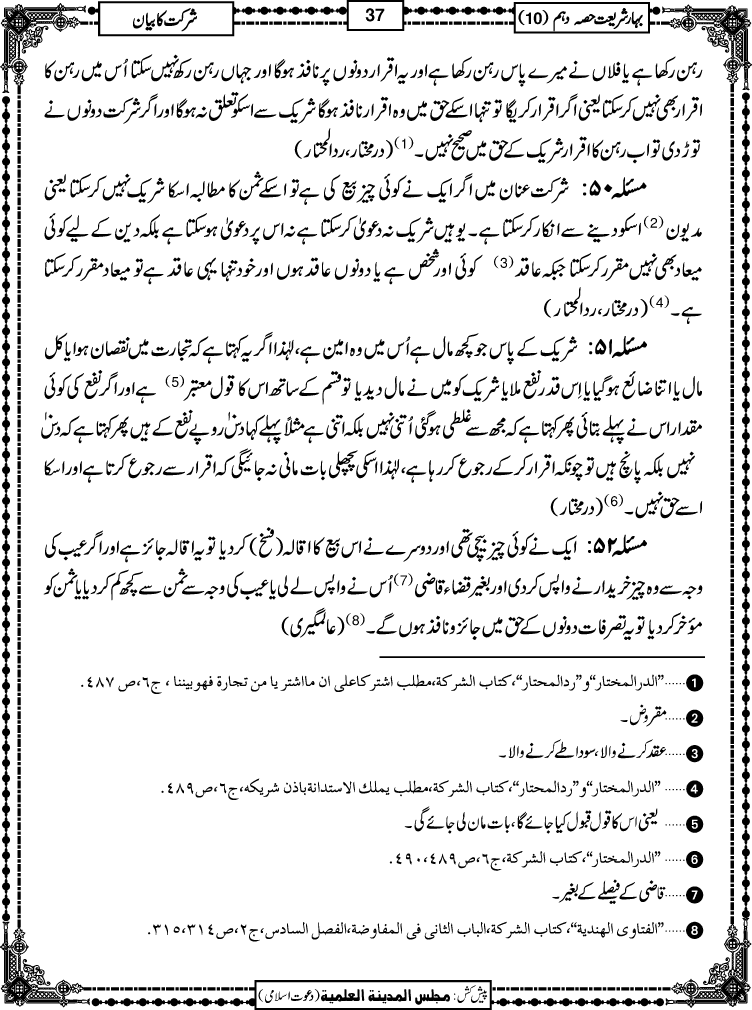 بہار شریعت حصہ دہم (10)
37
شرکت کا بیان
رہن رکھا ہے یا فلاں نے میرے پاس رہن رکھا ہے اور یہ اقرار دونوں پر نافذ ہوگا اور جہاں رہن رکھ نہیں سکتا اُس میں رہن کا
اقرار بھی نہیں کرسکتا یعنی اگر اقرار کریگا تو تنہا اسکے حق میں وہ اقرار نافذ ہوگا شریک سے اسکو تعلق نہ ہوگا اور اگر شرکت دونوں نے
توڑ دی تو اب رہن کا اقرار شریک کے حق میں صحیح نہیں۔(1) (درمختار، ردالمحتار)
مسئلہ ۵۰: شرکت عنان میں اگر ایک نے کوئی چیز بیع کی ہے تو اسکے ثمن کا مطالبہ اسکا شریک نہیں کرسکتا یعنی
مدیون(2) اسکو دینے سے انکار کرسکتا ہے۔ یوہیں شریک نہ دعویٰ کرسکتا ہے نہ اس پر دعویٰ ہوسکتا ہے بلکہ دین کے لیے کوئی
میعاد بھی نہیں مقرر کرسکتا جبکہ عاقد(3) کوئی اور شخص ہے یا دونوں عاقد ہوں اور خود تنہا یہی عاقد ہے تو میعاد مقرر کرسکتا
ہے۔(4) (درمختار، ردالمحتار)
مسئلہ ۵۱: شریک کے پاس جو کچھ مال ہے اُس میں وہ امین ہے، لہٰذا اگر یہ کہتا ہے کہ تجارت میں نقصان ہوا یا کل
مال یا اتنا ضائع ہوگیا یا اِس قدر نفع ملا یا شریک کو میں نے مال دیدیا تو قسم کے ساتھ اس کا قول معتبر(5) ہے اور اگر نفع کی کوئی
مقدار اس نے پہلے بتائی پھر کہتا ہے کہ مجھ سے غلطی ہوگئی اُتنی نہیں بلکہ اتنی ہے مثلاً پہلے کہا دس روپے نفع کے ہیں پھر کہتا ہے کہ دس
نہیں بلکہ پانچ ہیں تو چونکہ اقرار کرکے رجوع کررہا ہے، لہٰذا اسکی پچھلی بات مانی نہ جائیگی کہ اقرار سے رجوع کرتا ہے اور اسکا
اسے حق نہیں۔(6) (درمختار)
مسئلہ ۵۲: ایک نے کوئی چیز بیچی تھی اور دوسرے نے اس بیع کا اقالہ (فسخ) کردیا تو یہ اقالہ جائز ہے اور اگر عیب کی
وجہ سے وہ چیز خریدار نے واپس کردی اور بغیر قضاء قاضی(7) اُس نے واپس لے لی یا عیب کی وجہ سے ثمن سے کچھ کم کردیا یا ثمن کو
مؤخر کردیا تو یہ تصرفات دونوں کے حق میں جائز و نافذ ہوں گے۔(8) (عالمگیری)
1 ......"الدرالمختار" و "ردالمحتار"، کتاب الشرکة، مطلب اشترکا علی ان ما اشتریا من تجارة فھو بیننا، ج٦، ص ٤٨٧.
2 ......مقروض۔
3 ......عقد کرنے والا، سودا طے کرنے والا۔
4 ......"الدرالمختار" و "ردالمحتار"، کتاب الشرکة، مطلب یملك الاستدانة باذن شریکه، ج٦، ص٤٨٩.
5 ......یعنی اس کا قول قبول کیا جائے گا، بات مان لی جائے گی۔
6 ......"الدرالمختار"، کتاب الشرکة، ج٦، ص٤٨٩، ٤٩٠.
7 ......قاضی کے فیصلے کے بغیر۔
8 ......"الفتاوی الھندیة"، کتاب الشرکة، الباب الثانی فی المفاوضة، الفصل السادس، ج٢، ص٣١٤، ٣١٥.
پیش کش: مجلس المدینة العلمیة (دعوت اسلامی)